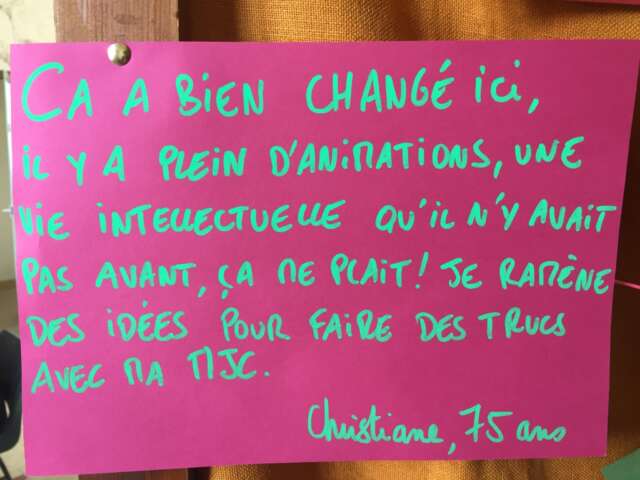 CA A BIEN CHANGÉ ICI,
IL Y A PLEIN D'ANIMATIONS, UNE
VIE INTELLECTUELLE QU'IL N'Y AVAIT
PAS AVANT, ÇA ME PLAIT! JE RAMÈNE
DES IDÉES POUR FAIRE DES TRUCS
AVEC MA MJC.
Christiane, 75 ans